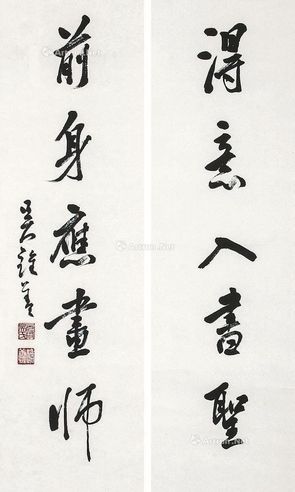 得意入書聖
前身應畫師
吳
Artron.Net